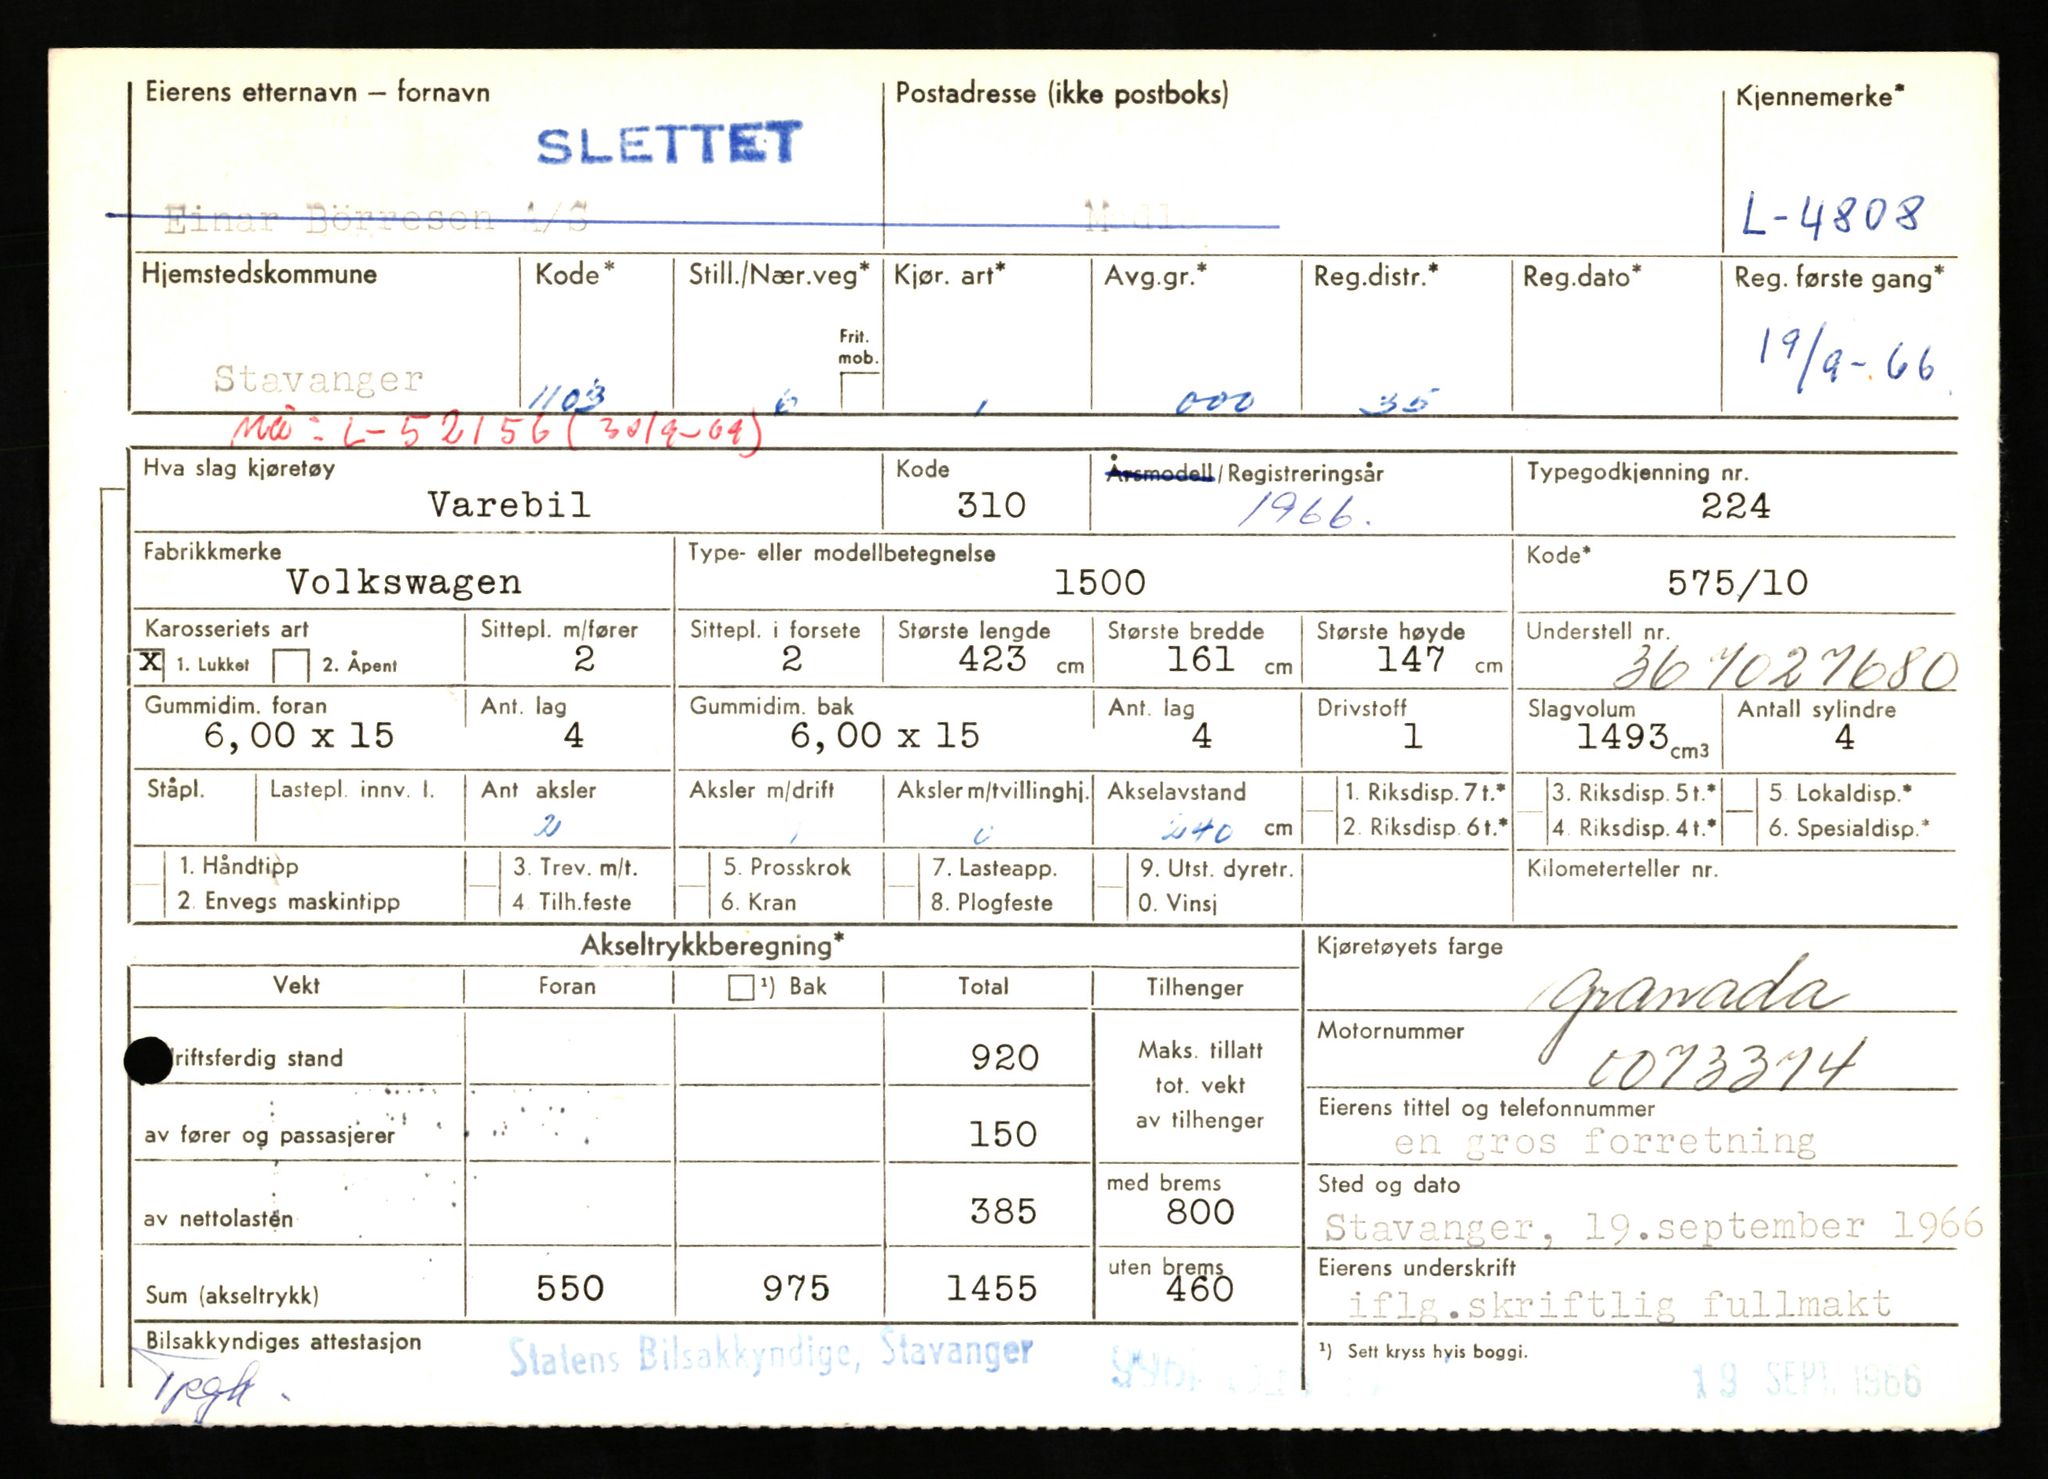 Eierens etternavn – fornavn Postadresse (ikke postboks) Kjennemerke*
SLETTET
Einar Börresen A/S L-4808
Hjemstedskommune Kode* Still./Nær.veg* Kjør. art* Avg.gr.* Reg.distr.* Reg.dato* Reg. første gang*
Frit. mob.
Stavanger 1103 6 1 000 35 19/9-66
Nå: L-52156 (30/9-69)
Hva slag kjøretøy Kode Årsmodell/Registreringsår Typegodkjenning nr.
Varebil 310 1966. 224
Fabrikkmerke Type- eller modellbetegnelse Kode*
Volkswagen 1500 575/10
Karosseriets art Sittepl. m/fører Sittepl. i forsete Største lengde Største bredde Største høyde Understell nr.
X 1. Lukket 2. Åpent 2 2 423 cm 161 cm 147 cm 367027680
Gummidim. foran Ant. lag Gummidim. bak Ant. lag Drivstoff Slagvolum Antall sylindre
6,00 x 15 4 6,00 x 15 4 1 1493 cm3 4
Ståpl. Lastepl. innv. l. Ant aksler Aksler m/drift Aksler m/tvillinghj. Akselavstand 1. Riksdisp. 7 t.* 3. Riksdisp. 5 t.* 5. Lokaldisp.*
2 1 0 240 cm 2. Riksdisp. 6 t.* 4. Riksdisp. 4 t.* 6. Spesialdisp.*
1. Håndtipp 3. Trev. m/t. 5. Prosskrok 7. Lasteapp. 9. Utst. dyretr. Kilometerteller nr.
2. Envegs maskintipp 4. Tilh.feste 6. Kran 8. Plogfeste 0. Vinsj
Akseltrykkberegning* Kjøretøyets farge
Vekt Foran ¹) Bak Total Tilhenger Granada
Motornummer
riftsferdig stand 920 Maks. tillatt tot. vekt av tilhenger 0073374
Eierens tittel og telefonnummer
av fører og passasjerer 150 en gros forretning
med brems Sted og dato
av nettolasten 385 800 Stavanger, 19.september 1966
uten brems Eierens underskrift
Sum (akseltrykk) 550 975 1455 460 iflg.skriftlig fullmakt
Bilsakkyndiges attestasjon Statens Bilsakkyndige, Stavanger ¹) Sett kryss hvis boggi.
19 SEPT. 1966